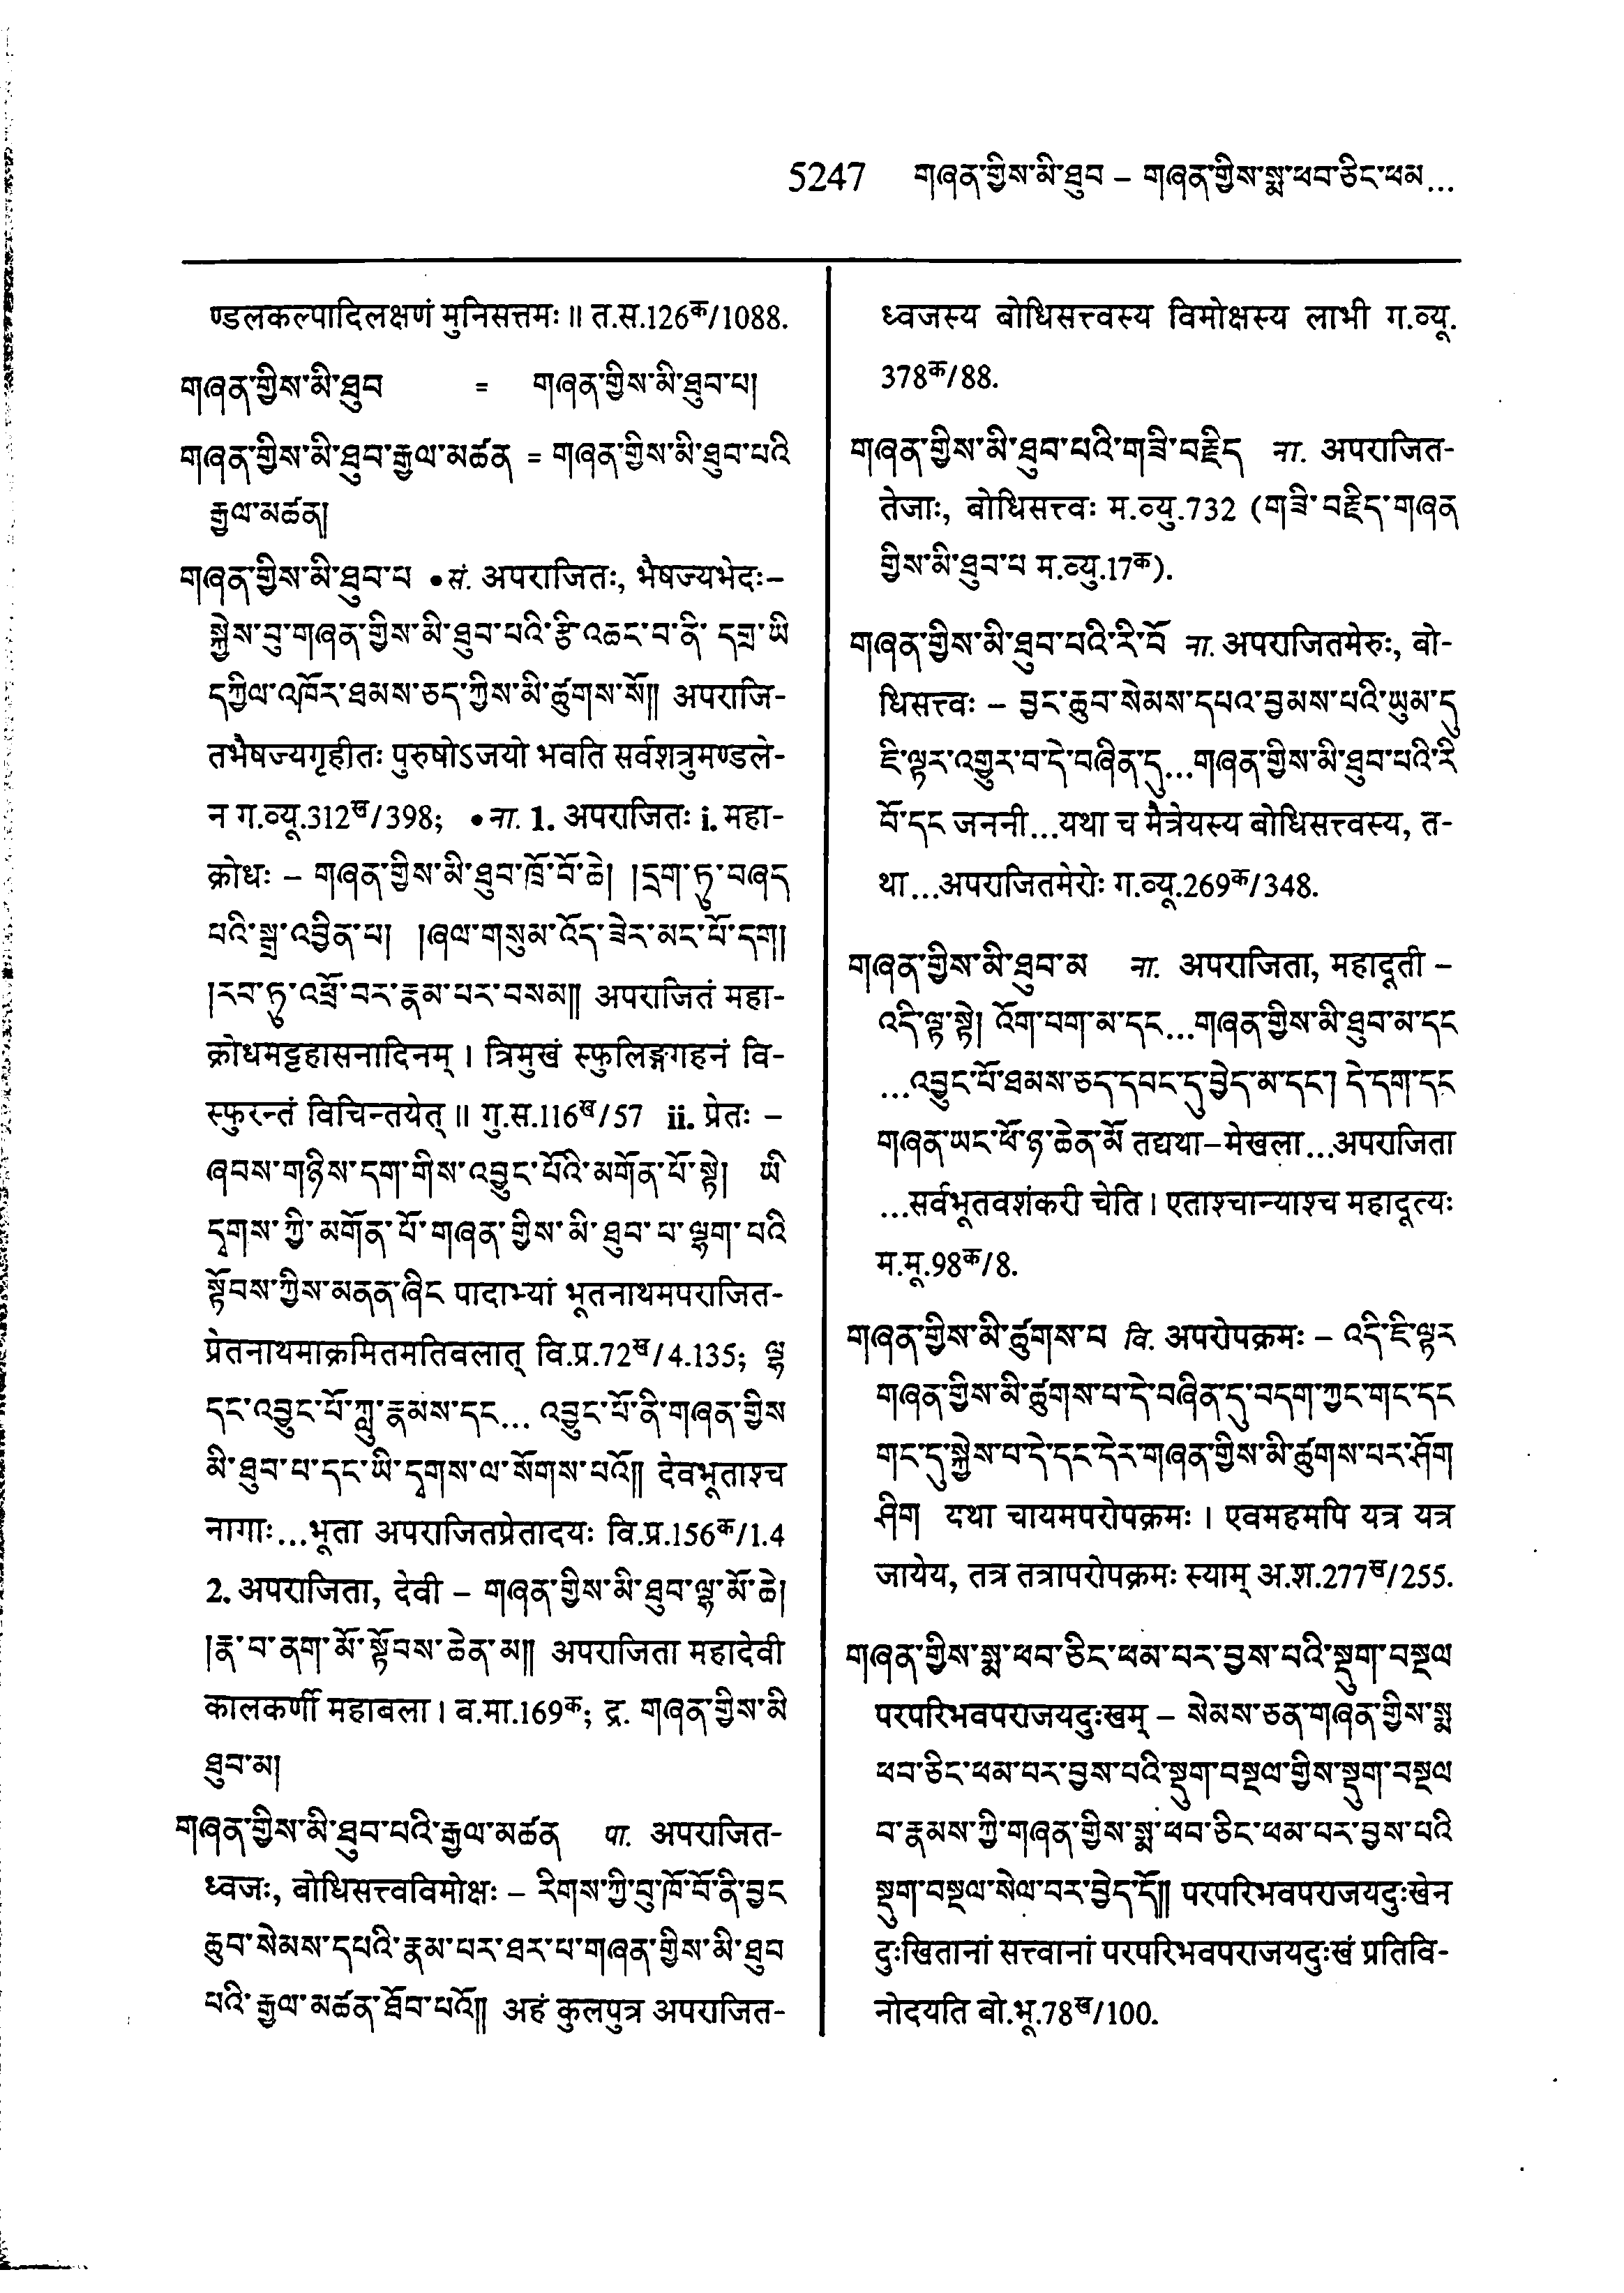 5247 གཞན་གྱིས་མི་ཐུབ – གཞན་གྱིས་སྨ་ཕབ་ཅིང་ཕམ...
ण्डलकल्पादिलक्षणं मुनिसत्तमः ॥ त.स.126क/1088.
གཞན་གྱིས་མི་ཐུབ = གཞན་གྱིས་མི་ཐུབ་པ།
གཞན་གྱིས་མི་ཐུབ་རྒྱལ་མཚན = གཞན་གྱིས་མི་ཐུབ་པའི
རྒྱལ་མཚན།
གཞན་གྱིས་མི་ཐུབ་པ • सं. अपराजितः, भैषज्यभेदः–
སྐྱེས་བུ་གཞན་གྱིས་མི་ཐུབ་པའི་རྩི་འཆང་བ་ནི་ དགྲ་ཡི
དཀྱིལ་འཁོར་ཐམས་ཅད་ཀྱིས་མི་ཚུགས་སོ།། अपराजि-
तभैषज्यगृहीतः पुरुषोऽजयो भवति सर्वशत्रुमण्डले-
न ग.व्यू.312ख/398; • ना. 1. अपराजितः i. महा-
क्रोधः – གཞན་གྱིས་མི་ཐུབ་ཁྲོ་བོ་ཆེ། །དྲག་ཏུ་བཞད
པའི་སྒྲ་འབྱིན་པ། །ཞལ་གསུམ་འོད་ཟེར་མང་པོ་དག།
།རབ་ཏུ་འཕྲོ་བར་རྣམ་པར་བསམ།། अपराजितं महा-
क्रोधमट्टहासनादिनम् । त्रिमुखं स्फुलिङ्गगहनं वि-
स्फुरन्तं विचिन्तयेत् ॥ गु.स.116ख/57 ii. प्रेतः –
ཞབས་གཉིས་དག་གིས་འབྱུང་པོའི་མགོན་པོ་སྟེ། ཡི
དྭགས་ཀྱི་མགོན་པོ་གཞན་གྱིས་མི་ཐུབ་པ་ལྷག་པའི
སྟོབས་ཀྱིས་མནན་ཞིང पादाभ्यां भूतनाथमपराजित-
प्रेतनाथमाक्रमितमतिबलात् वि.प्र.72ख/4.135; ལྷ
དང་འབྱུང་པོ་ཀླུ་རྣམས་དང... འབྱུང་པོ་ནི་གཞན་གྱིས
མི་ཐུབ་པ་དང་ཡི་དྭགས་ལ་སོགས་པའོ།། देवभूताश्च
नागाः...भूता अपराजितप्रेतादयः वि.प्र.156क/1.4
2. अपराजिता, देवी – གཞན་གྱིས་མི་ཐུབ་ལྷ་མོ་ཆེ།
།རྣ་བ་ནག་མོ་སྟོབས་ཆེན་མ།། अपराजिता महादेवी
कालकर्णी महाबला । ब.मा.169क; द्र. གཞན་གྱིས་མི
ཐུབ་མ།
གཞན་གྱིས་མི་ཐུབ་པའི་རྒྱལ་མཚན पा. अपराजित-
ध्वजः, बोधिसत्त्वविमोक्षः – རིགས་ཀྱི་བུ་ཁོ་བོ་ནི་བྱང
ཆུབ་སེམས་དཔའི་རྣམ་པར་ཐར་པ་གཞན་གྱིས་མི་ཐུབ
པའི་རྒྱལ་མཚན་ཐོབ་པའོ།། अहं कुलपुत्र अपराजित-
ध्वजस्य बोधिसत्त्वस्य विमोक्षस्य लाभी ग.व्यू.
378क/88.
གཞན་གྱིས་མི་ཐུབ་པའི་གཟི་བརྗིད ना. अपराजित-
तेजाः, बोधिसत्त्वः म.व्यु.732 (གཟི་བརྗིད་གཞན
གྱིས་མི་ཐུབ་པ म.व्यु.17क).
གཞན་གྱིས་མི་ཐུབ་པའི་རི་བོ ना. अपराजितमेरुः, बो-
धिसत्त्वः – བྱང་ཆུབ་སེམས་དཔའ་བྱམས་པའི་ཡུམ་དུ
ཇི་ལྟར་འགྱུར་བ་དེ་བཞིན་དུ...གཞན་གྱིས་མི་ཐུབ་པའི་རི
བོ་དང जननी...यथा च मैत्रेयस्य बोधिसत्त्वस्य, त-
था...अपराजितमेरोः ग.व्यू.269क/348.
གཞན་གྱིས་མི་ཐུབ་མ ना. अपराजिता, महादूती –
འདི་ལྟ་སྟེ། འོག་པག་མ་དང...གཞན་གྱིས་མི་ཐུབ་མ་དང
...འབྱུང་པོ་ཐམས་ཅད་དབང་དུ་བྱེད་མ་དང། དེ་དག་དང
གཞན་ཡང་ཕོ་ཉ་ཆེན་མོ तद्यथा–मेखला...अपराजिता
...सर्वभूतवशंकरी चेति । एताश्चान्याश्च महादूत्यः
म.मू.98क/8.
གཞན་གྱིས་མི་ཚུགས་པ वि. अपरोपक्रमः – འདི་ཇི་ལྟར
གཞན་གྱིས་མི་ཚུགས་པ་དེ་བཞིན་དུ་བདག་ཀྱང་གང་དང
གང་དུ་སྐྱེས་པ་དེ་དང་དེར་གཞན་གྱིས་མི་ཚུགས་པར་ཤོག
ཤིག यथा चायमपरोपक्रमः । एवमहमपि यत्र यत्र
जायेय, तत्र तत्रापरोपक्रमः स्याम् अ.श.277ख/255.
གཞན་གྱིས་སྨ་ཕབ་ཅིང་ཕམ་པར་བྱས་པའི་སྡུག་བསྔལ
परपरिभवपराजयदुःखम् – སེམས་ཅན་གཞན་གྱིས་སྨ
ཕབ་ཅིང་ཕམ་པར་བྱས་པའི་སྡུག་བསྔལ་གྱིས་སྡུག་བསྔལ
བ་རྣམས་ཀྱི་གཞན་གྱིས་སྨ་ཕབ་ཅིང་ཕམ་པར་བྱས་པའི
སྡུག་བསྔལ་སེལ་བར་བྱེད་དོ།། परपरिभवपराजयदुःखेन
दुःखितानां सत्त्वानां परपरिभवपराजयदुःखं प्रतिवि-
नोदयति बो.भू.78ख/100.